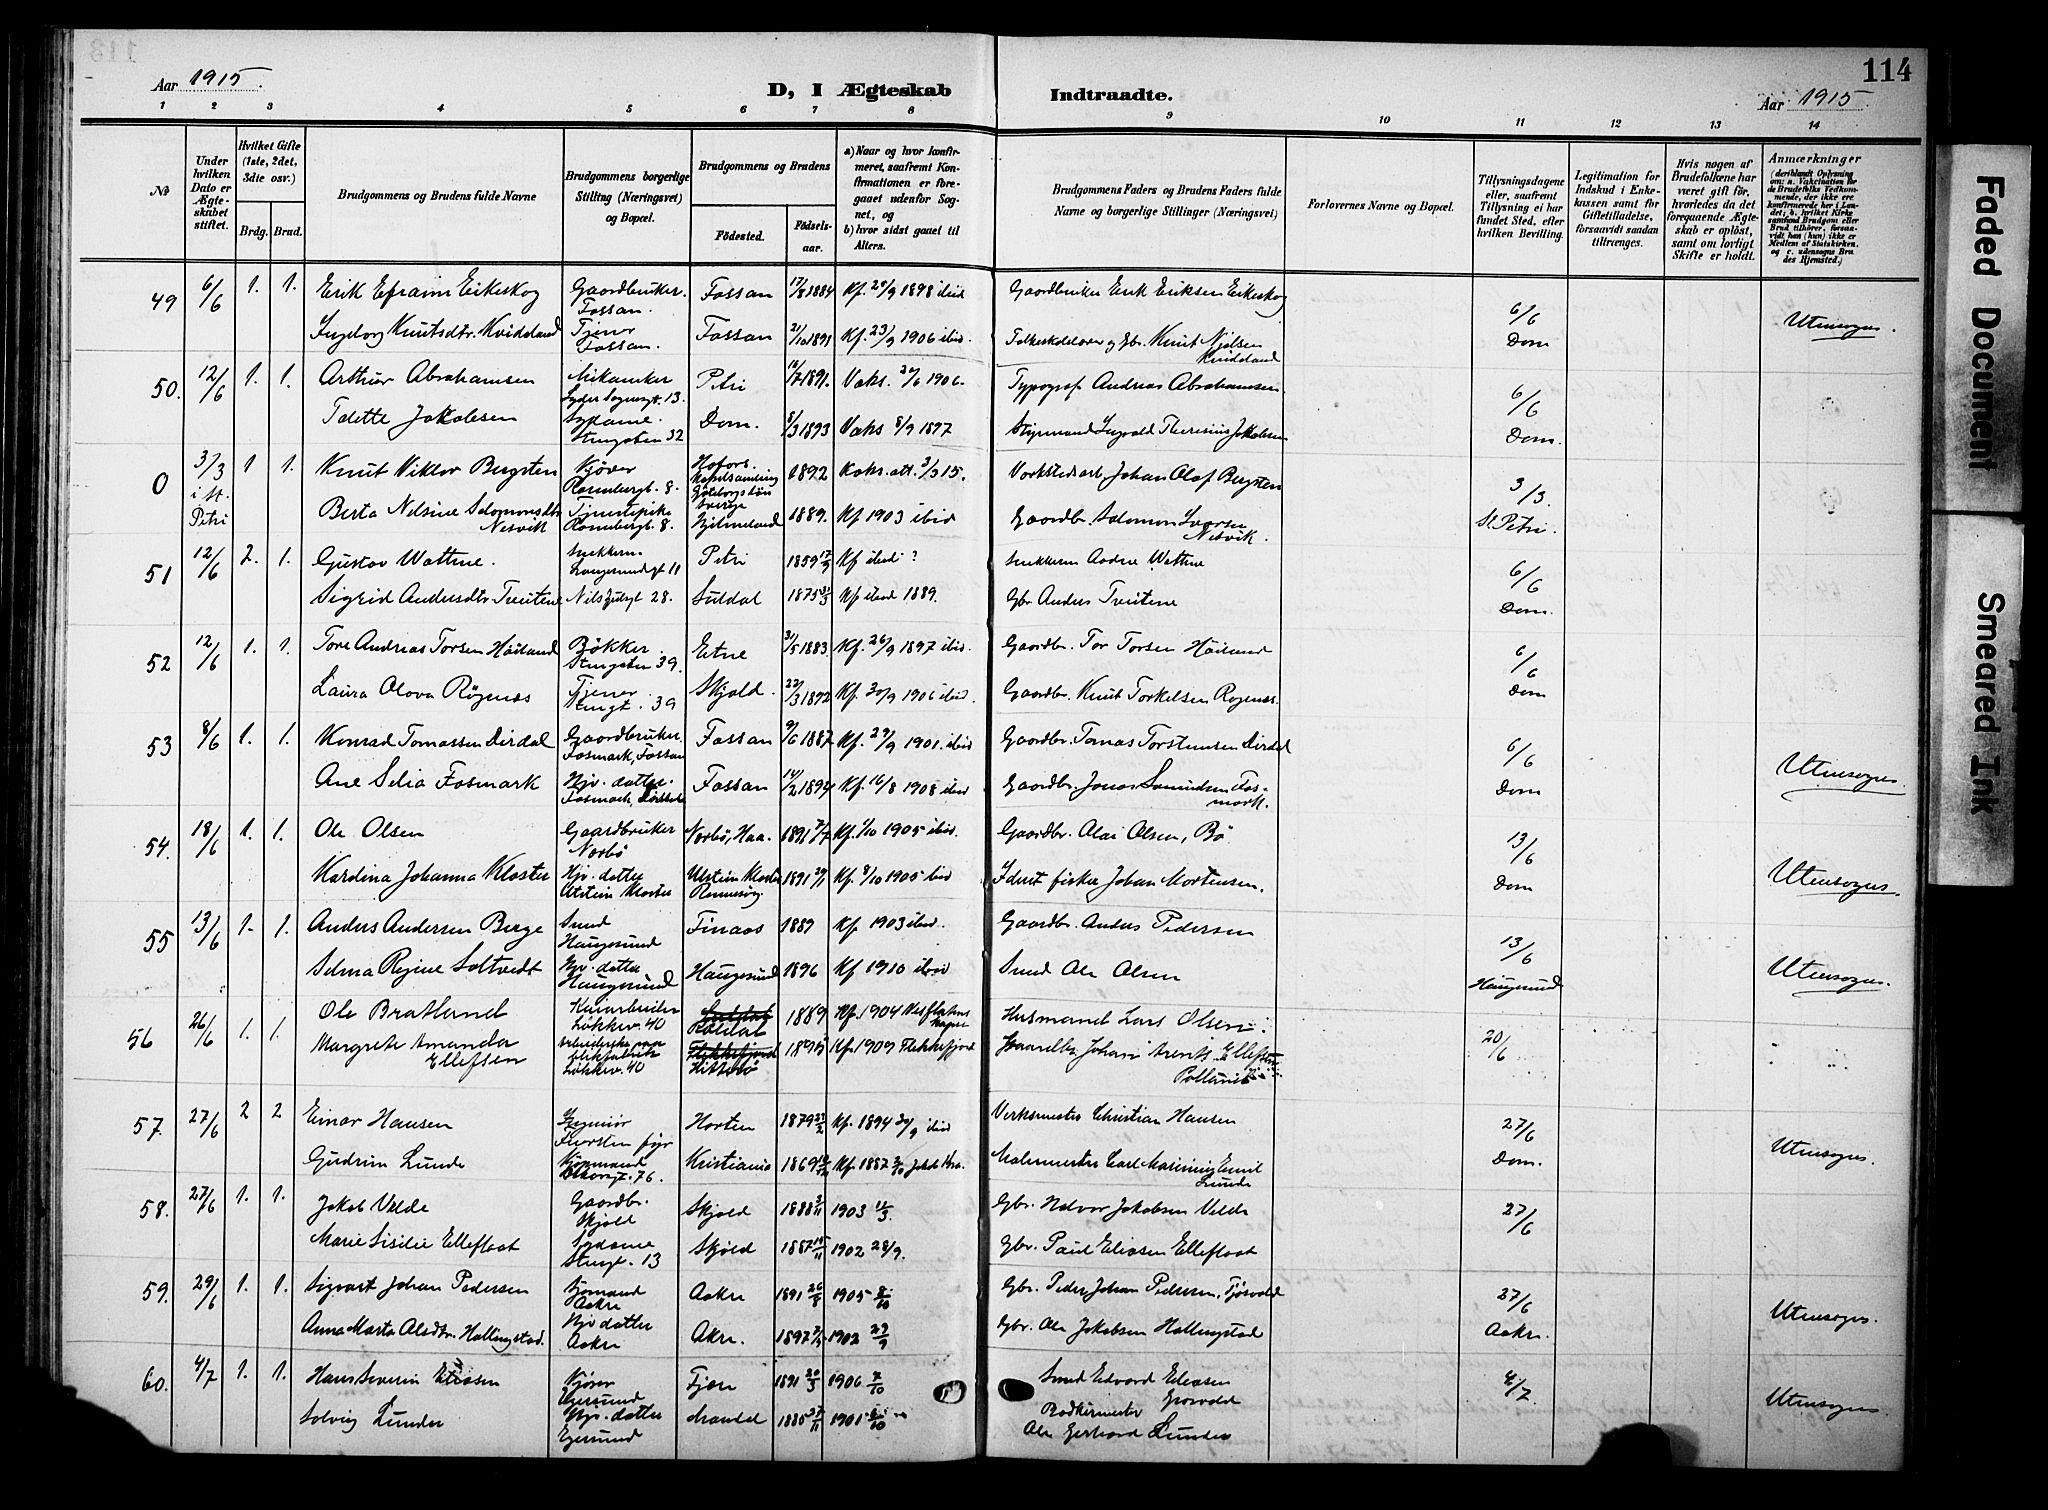 113
114
Aar 1915.
D, I Ægteskab Indtraadte.
Aar 1915.
1 2 3 4 5 6 7 8 9 10 11 12 13 14
No
Under hvilken Dato er Ægteskabet stiftet.
Hvilket Gifte (1ste, 2det, 3die osv.)
Brdg. Brud.
Brudgommens og Brudens fulde Navne
Brudgommens borgerlige Stilling (Næringsvei) og Bopæl.
Brudgommens og Brudens
Födested. Födselsaar.
a) Naar og hvor konfirmeret, saafremt Konfirmationen er foregaaet udenfor Sognet, og
b) hvor sidst gaaet til Alters.
Brudgommens Faders og Brudens Faders fulde Navne og borgerlige Stillinger (Næringsvei)
Forlovernes Navne og Bopæl.
Tillysningsdagene eller, saafremt Tillysning ei har fundet Sted, efter hvilken Bevilling.
Legitimation for Indskud i Enkekassen samt for Giftetilladelse, forsaavidt saadan tiltrænges.
Hvis nogen af Brudefolkene har været gift för, hvorledes da det foregaaende Ægteskab er oplöst, samt om lovligt Skifte er holdt.
Anmærkninger (deriblandt Oplysning om: a. Vakcination for de Brudefolks Vedkommende, der ikke ere konfirmerede her i Landet; b. hvilket Kirkesamfund Brudgom eller Brud tilhörer, forsaavidt han (hun) ikke er Medlem af Statskirken, og c. udensogns Brudes Hjemsted.)
49 6/6 1. 1. Erik Efraim Eikeskog Gaardbruker. Fossan. Fossan 17/8 1884 Kf. 25/9 1898 ibid Gaardbruker Erik Eriksen Eikeskog 6/6 Dom Utensogns.
Ingeborg Knutsdtr. Kvideland Tjener Fossan. Fossan 21/10 1891 Kf. 23/9 1906 ibid. Folkeskolelærer og Gbr. Knut Njelsen Kvideland
50. 12/6 1. 1. Arthur Abrahamsen Petri 1891. Vaks. 1906. Typograf Andreas Abrahamsen 6/6 Dom.
Tolette Jakobsen Sydame. Stengaten 32 Dom. 8/3 1893 Vaks 8/9 1897 Styrmand Ingvald Theresius Jakobsen
0 3/3 i St. Petri 1 1. Knut Viktor Bergsten Kjører Rosenbergt. 8. Hofors. Kapelsamling Göteborgs län Sverige 1892 Koks. att. 3/3 15. Verkstedsarb. Johan Olof Bergsten 3/3 St. Petri.
Berta Nilsine Salomonsdtr Nesvik Tjenestepike Rosenbergt. 8. Hjelmeland 1889. Kf 1903 ibid Gaardbr. Salomon Iversen Nesvik.
51 12/6 2. 1. Gustav Wathne. Snekkerm. Langesundgt 11 Petri 1859 17/9 Kf ibid ? Snekkerm Wathne 6/6 Dom.
Sigrid Andersdtr. Tveitene Nils Juelsgt 28. Suldal 1875 Kf ibid 1889. Gbr. Anders Tveitene
52 12/6 1. 1. Tore Andreas Torsen Håiland Bøkker. Stengaten 39. Etne 31/5 1883. Kf. 26/9 1897 ibid. Gaardbr. Tor Torsen Håiland 6/6 Dom
Laura Olova Røgenæs Tjener. Stengt. 39 Skjold. 22/3 1892 Kf. 30/9 1906 ibid. Gaardbr. Knut Torkelsen Røgenæs.
53 8/6 1. 1. Konrad Tomassen Dirdal Gaardbruker. Fosmark, Fossan Fossan 9/6 1887 Kf. 29/9 1901. ibid Gaardbr. Tomas Torstensen Dirdal 6/6 Dom Utensogns.
Ane Selia Fosmark Hjv. datter. Fosmark, Fossan 14/2 1894 Kf. 16/8 1908 ibid Gaardbr. Jonas Samundsen Fosmark.
54. 18/6 1. 1. Ole Olsen Gaardbruker Norbø Norbø, Haa. 1891 7/7 Kf. 1/10 1905 ibid. Gaardbr. Olai Olsen, Bø 13/6 Dom Utensogns.
Kardina Johanna Kloster Hjv. datter Utstein Kloster Utstein Kloster Rennesøy 1891 29/11 Kf. 8/10 1905 ibid fisker Johan Mortensen.
55 13/6 1. 1. Anders Andersen Berge Smed Haugesund Finaas 1889 Kf. 1903 ibid. Gaardbr. Anders Pedersen 13/6 Haugesund Utensogns.
Selma Regine Soltvedt Hjv. datter Haugesund Haugesund 1896 Kf 1910 ibid Smed Ole Olsen
56 26/6 1. 1. Ole Bratland Kaiarbeider Løkkev. 40 Røldal 1889 Kf. 1904 Husmand Lars Olsen. 20/6
Margrete Amanda Ellefsen Løkkev. 40 Flekkefjord Hitterø Kf. 1909 Flekkefjord Johan Arents Ellefsen
57. 27/6 2 2 Einar Hansen Ingeniør Horten 1879 Kf. 1894 30/9 ibid Verksmester Christian Hansen 27/6 Dom. Utensogns.
Gudrun Lunde Kjøpmand 76. Kristiania 1869 Kf. 1887 Jakob Kra. Malermester Carl Emil Lunde
58. 27/6 1. 1. Jakob Velde Gaardbr. Skjold Skjold 1888 1903 11/3. Gbr. Halvor Jakobsen Velde 27/6
Marie Sisilie Ellefloat Sydame Stengt. 13 Skjold 1887 1902 28/9. Gbr. Paul Eliasen Ellefloat
59. 29/6 1. 1. Sigvart Johan Pedersen Sjømand Aakre Aakre 1891 26/8 1905 8/10 Gbr. Peder Johan Pedersen, Tjøsvold 27/6 Aakre. Utensogns.
Anna Marta Olsdtr. Hallingstad. Hjv datter Aakre Akre. 1897 1902 29/9 Gbr. Ole Jakobsen Hallingstad
60. 4/7 1. 1. Hans Severin Eliasen Kjører Egersund 1891 20/3 1906 7/10 Smed Edvard Eliasen Grøsvold 4/7 Utensogns.
Solveig Lunde Hjv. datter Egersund Mandal 1885 27/11 1901 Bødkermester Ole Gerhard Lunde
Faded Document
Smeared Ink